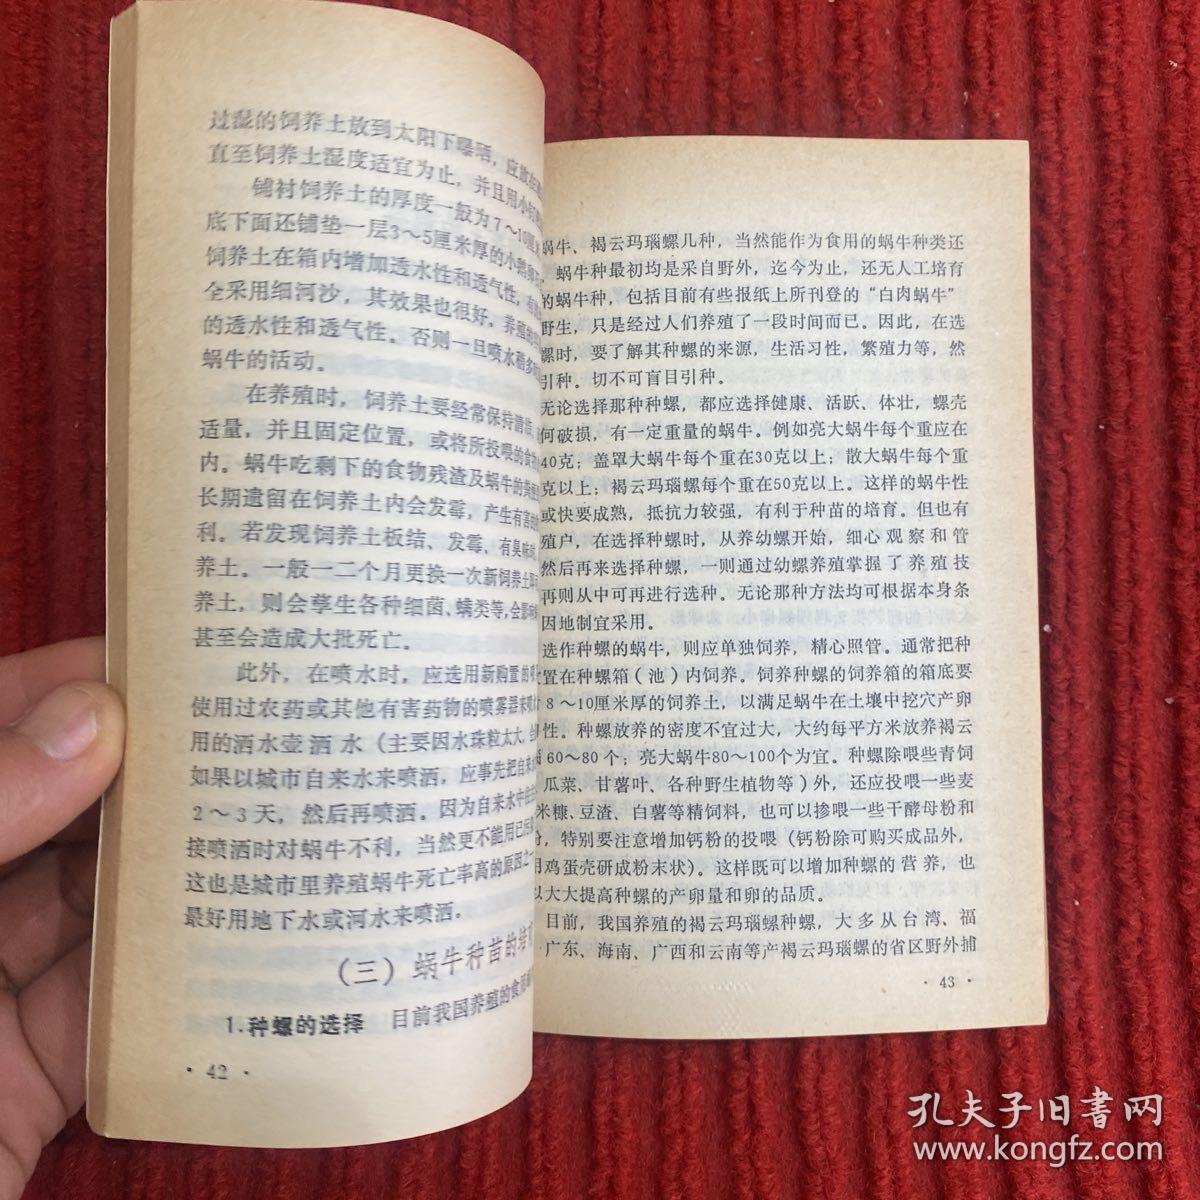 过湿的饲养土放到太阳下曝晒，应放在
直至饲养土湿度适宜为止，并且用小
铺衬饲养土的厚度一般为7～10厘米
底下面还铺垫一层3～5厘米厚的小
饲养土在箱内增加透水性和透气性，
全采用细河沙，其效果也很好，养殖
的透水性和透气性。否则一旦喷水稍多
蜗牛的活动。
在养殖时，饲养土要经常保持清洁
适量，并且固定位置，或将所投喂的食物
内。蜗牛吃剩下的食物残渣及蜗牛的粪
长期遗留在饲养土内会发霉，产生有害
利。若发现饲养土板结、发霉、有臭味
养土。一般一二个月更换一次新饲养土
养土，则会孳生各种细菌、螨类等，会影
甚至会造成大批死亡。
此外，在喷水时，应选用新购置的
使用过农药或其他有害药物的喷雾器来喷
用的洒水壶洒水（主要因水珠粒太大，
如果以城市自来水来喷洒，应事先把自来水
2～3天，然后再喷洒。因为自来水中
接喷洒时对蜗牛不利，当然更不能用已污
这也是城市里养殖蜗牛死亡率高的原因之一
最好用地下水或河水来喷洒。
（三）蜗牛种苗的培育
1.种螺的选择 目前我国养殖的食用
· 42 ·
蜗牛、褐云玛瑙螺几种，当然能作为食用的蜗牛种类还
蜗牛种最初均是采自野外，迄今为止，还无人工培育
的蜗牛种，包括目前有些报纸上所刊登的“白肉蜗牛”
野生，只是经过人们养殖了一段时间而已。因此，在选
螺时，要了解其种螺的来源，生活习性，繁殖力等，然
引种。切不可盲目引种。
无论选择那种种螺，都应选择健康、活跃、体壮，螺壳
何破损，有一定重量的蜗牛。例如亮大蜗牛每个重应在
40克；盖罩大蜗牛每个重在30克以上；散大蜗牛每个重
克以上；褐云玛瑙螺每个重在50克以上。这样的蜗牛性
或快要成熟，抵抗力较强，有利于种苗的培育。但也有
殖户，在选择种螺时，从养幼螺开始，细心观察和管
然后再来选择种螺，一则通过幼螺养殖掌握了养殖技
再则从中可再进行选种。无论那种方法均可根据本身条
因地制宜采用。
选作种螺的蜗牛，则应单独饲养，精心照管。通常把种
置在种螺箱（池）内饲养。饲养种螺的饲养箱的箱底要
8～10厘米厚的饲养土，以满足蜗牛在土壤中挖穴产卵
性。种螺放养的密度不宜过大，大约每平方米放养褐云
60～80个；亮大蜗牛80～100个为宜。种螺除喂些青饲
瓜菜、甘薯叶、各种野生植物等）外，还应投喂一些麦
米糠、豆渣、白薯等精饲料，也可以掺喂一些干酵母粉和
粉，特别要注意增加钙粉的投喂（钙粉除可购买成品外，
用鸡蛋壳研成粉末状）。这样既可以增加种螺的营养，也
以大大提高种螺的产卵量和卵的品质。
目前，我国养殖的褐云玛瑙螺种螺，大多从台湾、福
广东、海南、广西和云南等产褐云玛瑙螺的省区野外捕
· 43 ·
孔夫子旧书网
www.kongfz.com